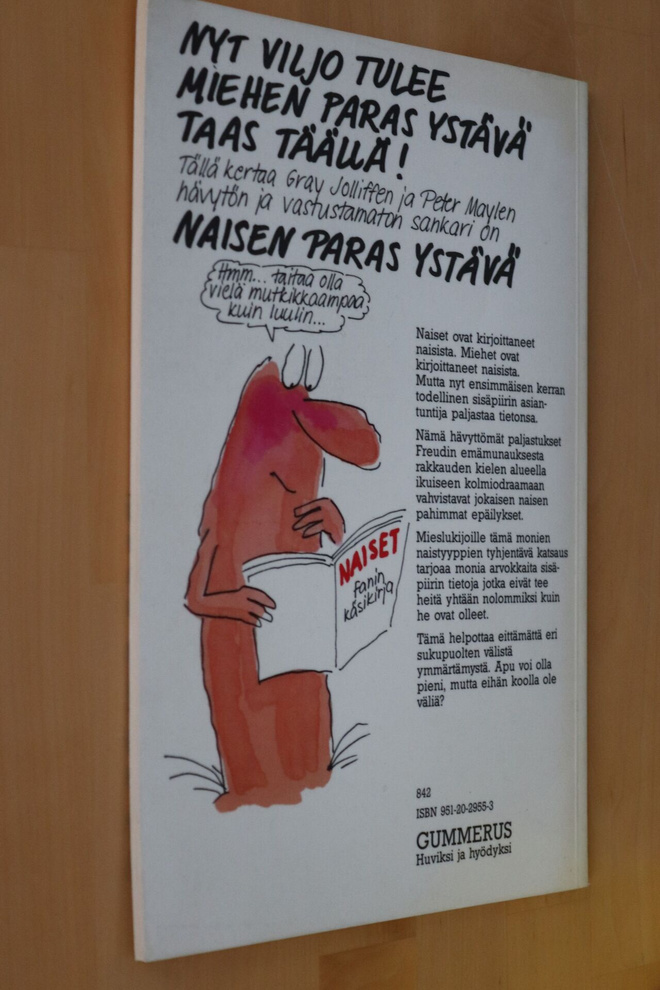 NYT VILJO TULEE
MIEHEN PARAS YSTÄVÄ
TAAS TÄÄLLÄ!
Tällä kertaa Gray Jolliffen ja Peter Maylen
hävytön ja vastustamaton sankari on
NAISEN PARAS YSTÄVÄ
Hmm... taitaa olla
vielä mutkikkaampaa
kuin luulin...
NAISET
fanin
käsikirja
Naiset ovat kirjoittaneet
naisista. Miehet ovat
kirjoittaneet naisista.
Mutta nyt ensimmäisen kerran
todellinen sisäpiirin asian-
tuntija paljastaa tietonsa.
Nämä hävyttömät paljastukset
Freudin emämunauksesta
rakkauden kielen alueella
ikuiseen kolmiodraamaan
vahvistavat jokaisen naisen
pahimmat epäilykset.
Mieslukijoille tämä monien
naistyyppien tyhjentävä katsaus
tarjoaa monia arvokkaita sisä-
piirin tietoja jotka eivät tee
heitä yhtään nolommiksi kuin
he ovat olleet.
Tämä helpottaa eittämättä eri
sukupuolten välistä
ymmärtämystä. Apu voi olla
pieni, mutta eihän koolla ole
väliä?
842
ISBN 951-20-2955-3
GUMMERUS
Huviksi ja hyödyksi